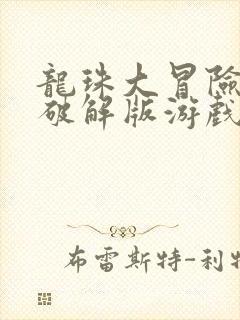 龍珠大冒險
破解版游戲
布雷斯特-利特